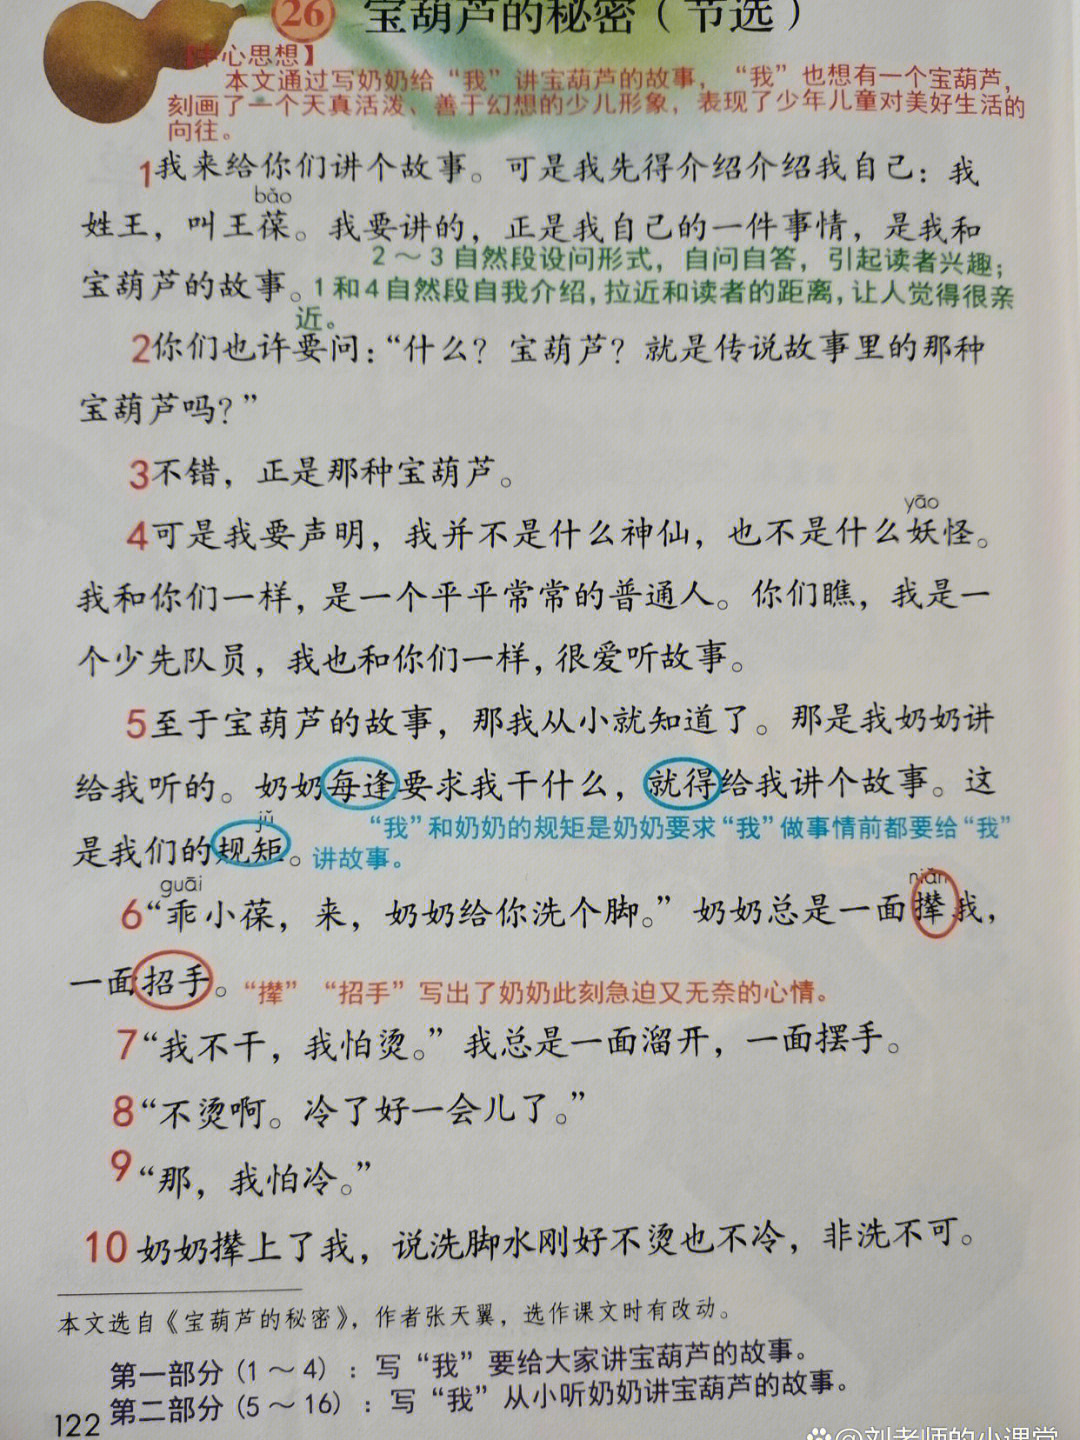 26 宝葫芦的秘密（节选）
【中心思想】
本文通过写奶奶给“我”讲宝葫芦的故事，“我”也想有一个宝葫芦，
刻画了一个天真活泼、善于幻想的少儿形象，表现了少年儿童对美好生活的
向往。
1我来给你们讲个故事。可是我先得介绍介绍我自己：我
bǎo
姓王，叫王葆。我要讲的，正是我自己的一件事情，是我和
2～3自然段设问形式，自问自答，引起读者兴趣；
宝葫芦的故事。
1和4自然段自我介绍，拉近和读者的距离，让人觉得很亲
近。
2你们也许要问：“什么？宝葫芦？就是传说故事里的那种
宝葫芦吗？”
3不错，正是那种宝葫芦。
yāo
4可是我要声明，我并不是什么神仙，也不是什么妖怪。
我和你们一样，是一个平平常常的普通人。你们瞧，我是一
个少先队员，我也和你们一样，很爱听故事。
5至于宝葫芦的故事，那我从小就知道了。那是我奶奶讲
给我听的。奶奶每逢要求我干什么，就得给我讲个故事。这
jǔ
是我们的规矩。
“我”和奶奶的规矩是奶奶要求“我”做事情前都要给“我”
讲故事。
guāi niǎn
6“乖小葆，来，奶奶给你洗个脚。”奶奶总是一面撵我，
一面招手。
“撵”“招手”写出了奶奶此刻急迫又无奈的心情。
7“我不干，我怕烫。”我总是一面溜开，一面摆手。
8“不烫啊。冷了好一会儿了。”
9“那，我怕冷。”
10奶奶撵上了我，说洗脚水刚好不烫也不冷，非洗不可。
本文选自《宝葫芦的秘密》，作者张天翼，选作课文时有改动。
第一部分（1～4）：写“我”要给大家讲宝葫芦的故事。
第二部分（5～16）：写“我”从小听奶奶讲宝葫芦的故事。
122
@刘老师的小课堂